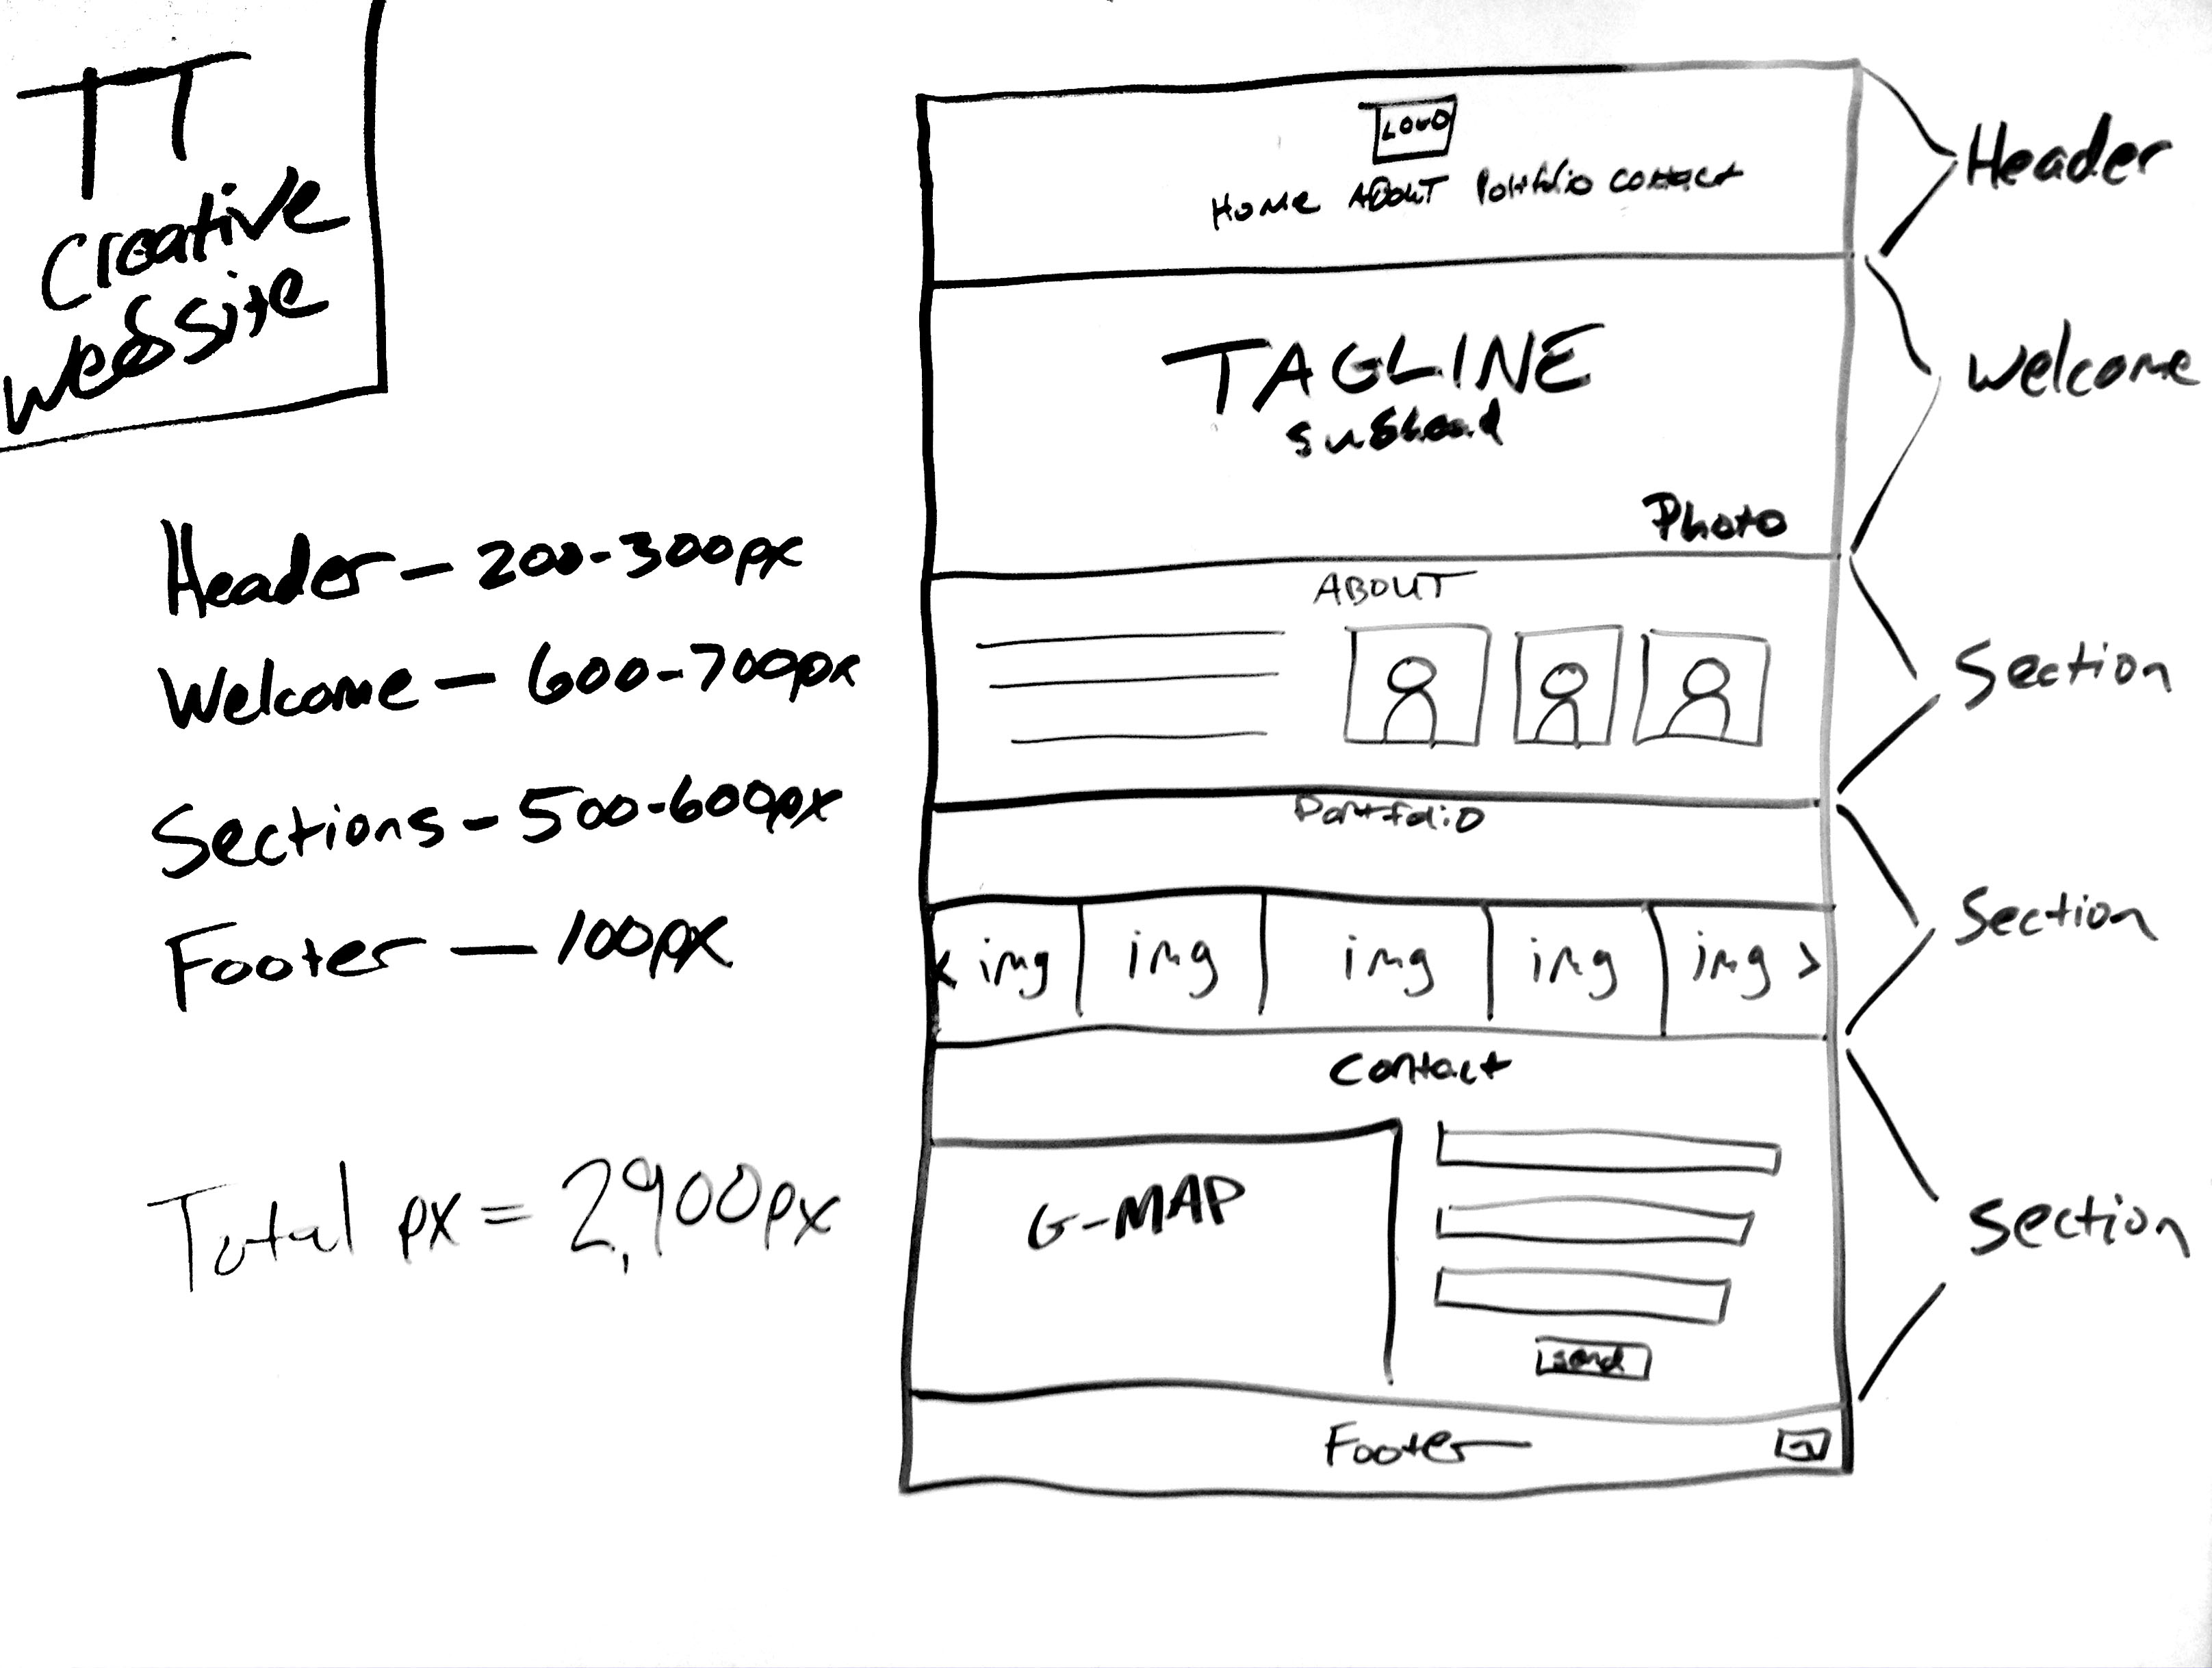 TT
Creative
Website
Header - 200-300px
Welcome - 600-700px
Sections - 500-600px
Footer - 100px
Total px = 2,900px
LOGO
Home ABOUT Portfolio contact
TAGLINE
subhead
Photo
ABOUT
Portfolio
< img img img img img >
Contact
G-MAP
send
Footer
Header
Welcome
Section
Section
Section